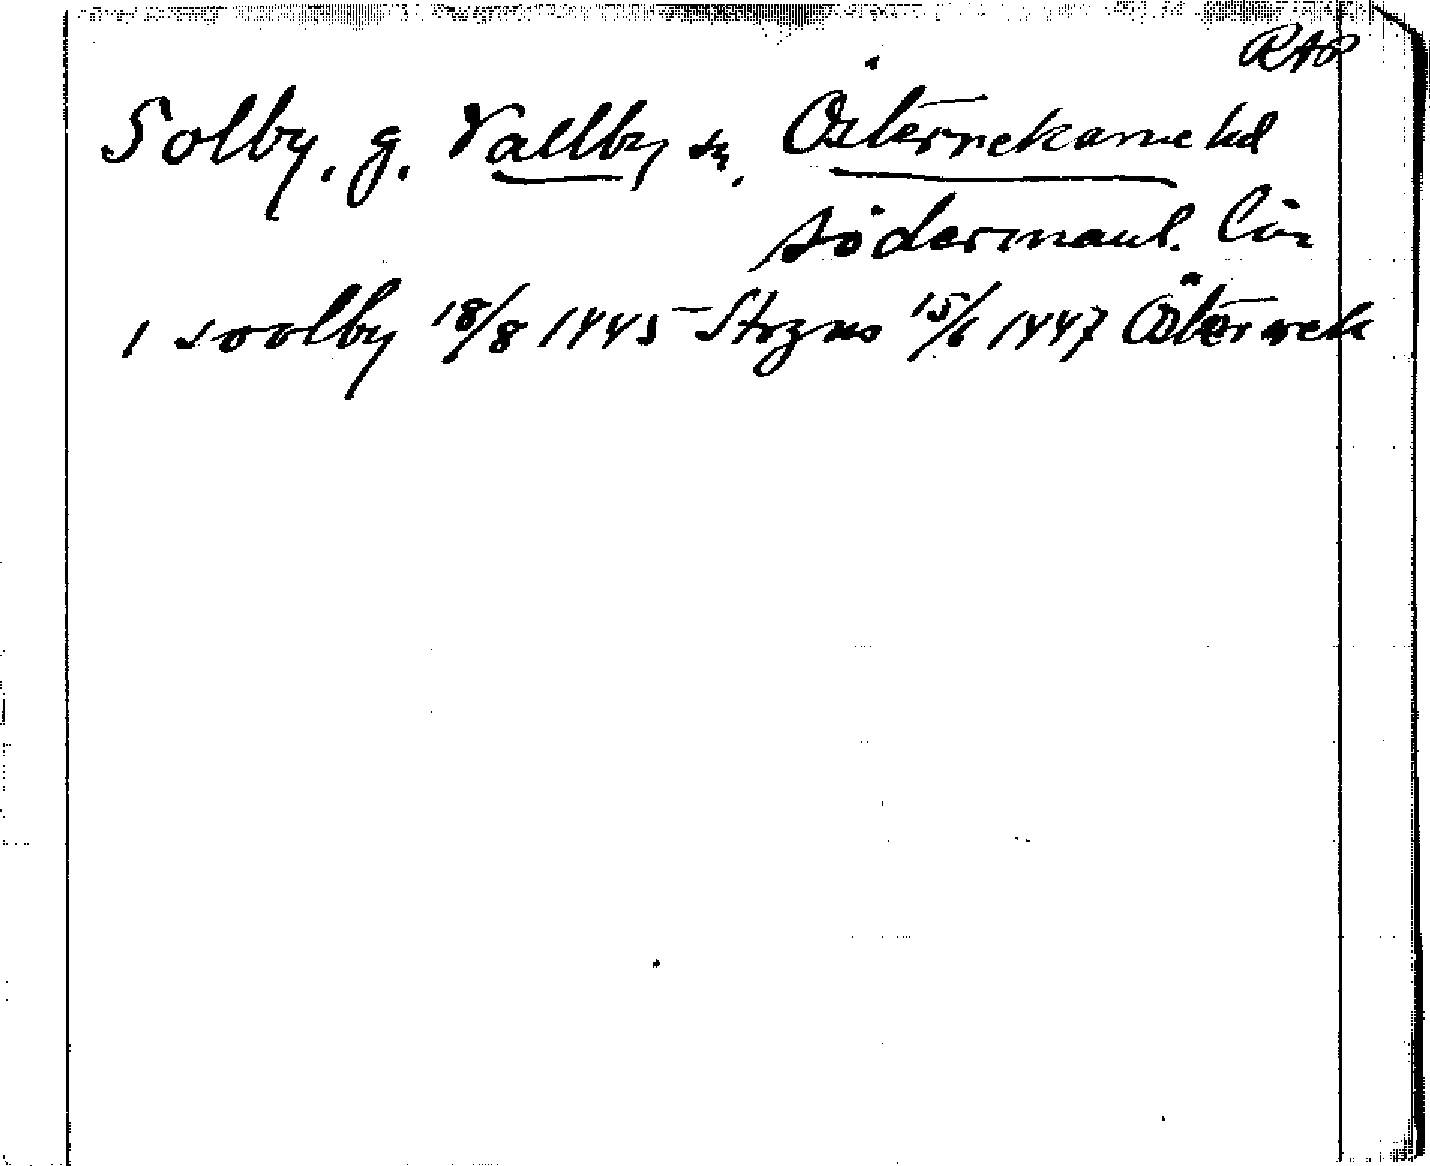 RAP
Solby, g. Vallby sn. Österrekarne hd
Södermanl. län
i soolby 18/8 1445 Strgnäs 15/6 1447 Österrek